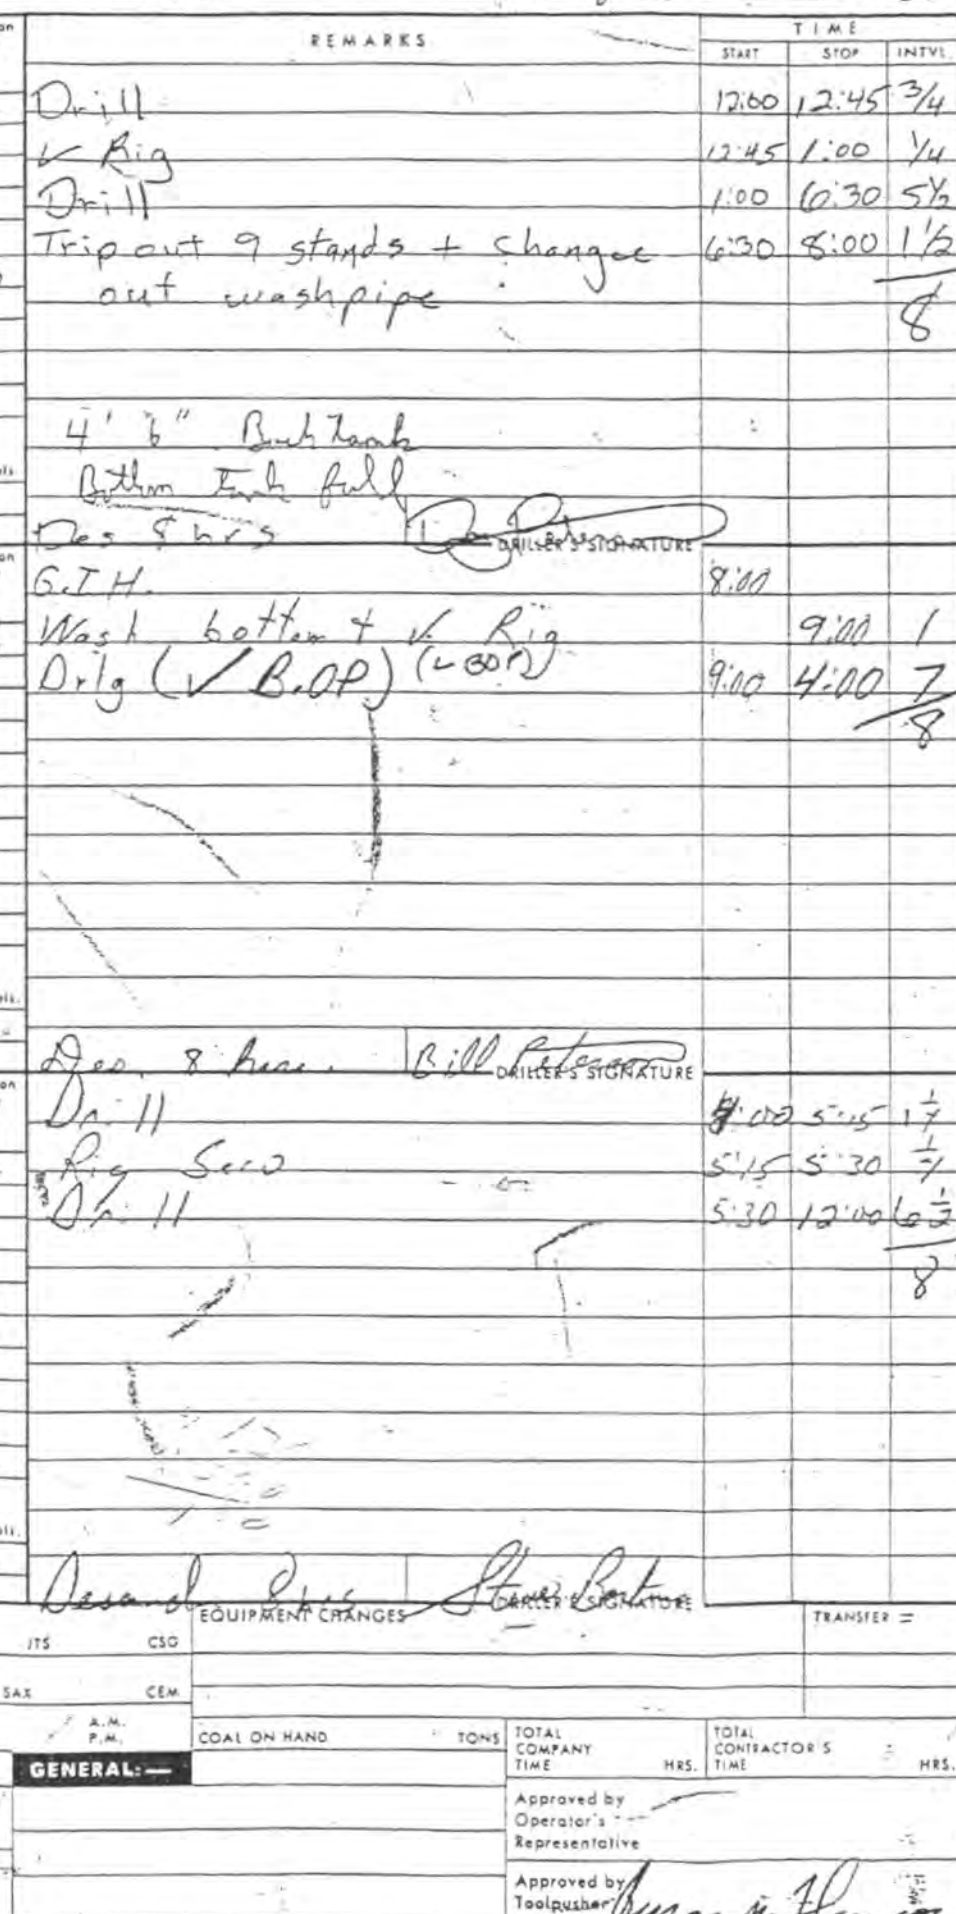 REMARKS
TIME
START STOP INTVL
Drill 12:00 12:45 3/4
✓ Rig 12:45 1:00 1/4
Drill 1:00 6:30 5 1/2
Trip out 9 stands + change 6:30 8:00 1 1/2
out washpipe 8
4' 6" Back Tank
Bottom Tank full
Des 8 hrs
DRILLER'S SIGNATURE
G.I.H. 8:00
Wash bottom + ✓ Rig 9:00 1
Drlg (✓ B.OP) (✓ BOP) 9:00 4:00 7
8
Des. 8 hrs. Bill Peterson
DRILLER'S SIGNATURE
Drill 4:00 5:15 1 1/4
Rig Serv 5:15 5:30 1/4
Drill 5:30 12:00 6 1/2
8
Desand 8 hrs Steve
DRILLER'S SIGNATURE
EQUIPMENT CHANGES TRANSFER =
JTS CSG
SAX CEM
A.M.
P.M.
COAL ON HAND TONS TOTAL COMPANY TIME HRS. TOTAL CONTRACTOR'S TIME HRS.
GENERAL:—
Approved by
Operator's
Representative
Approved by
Toolpusher